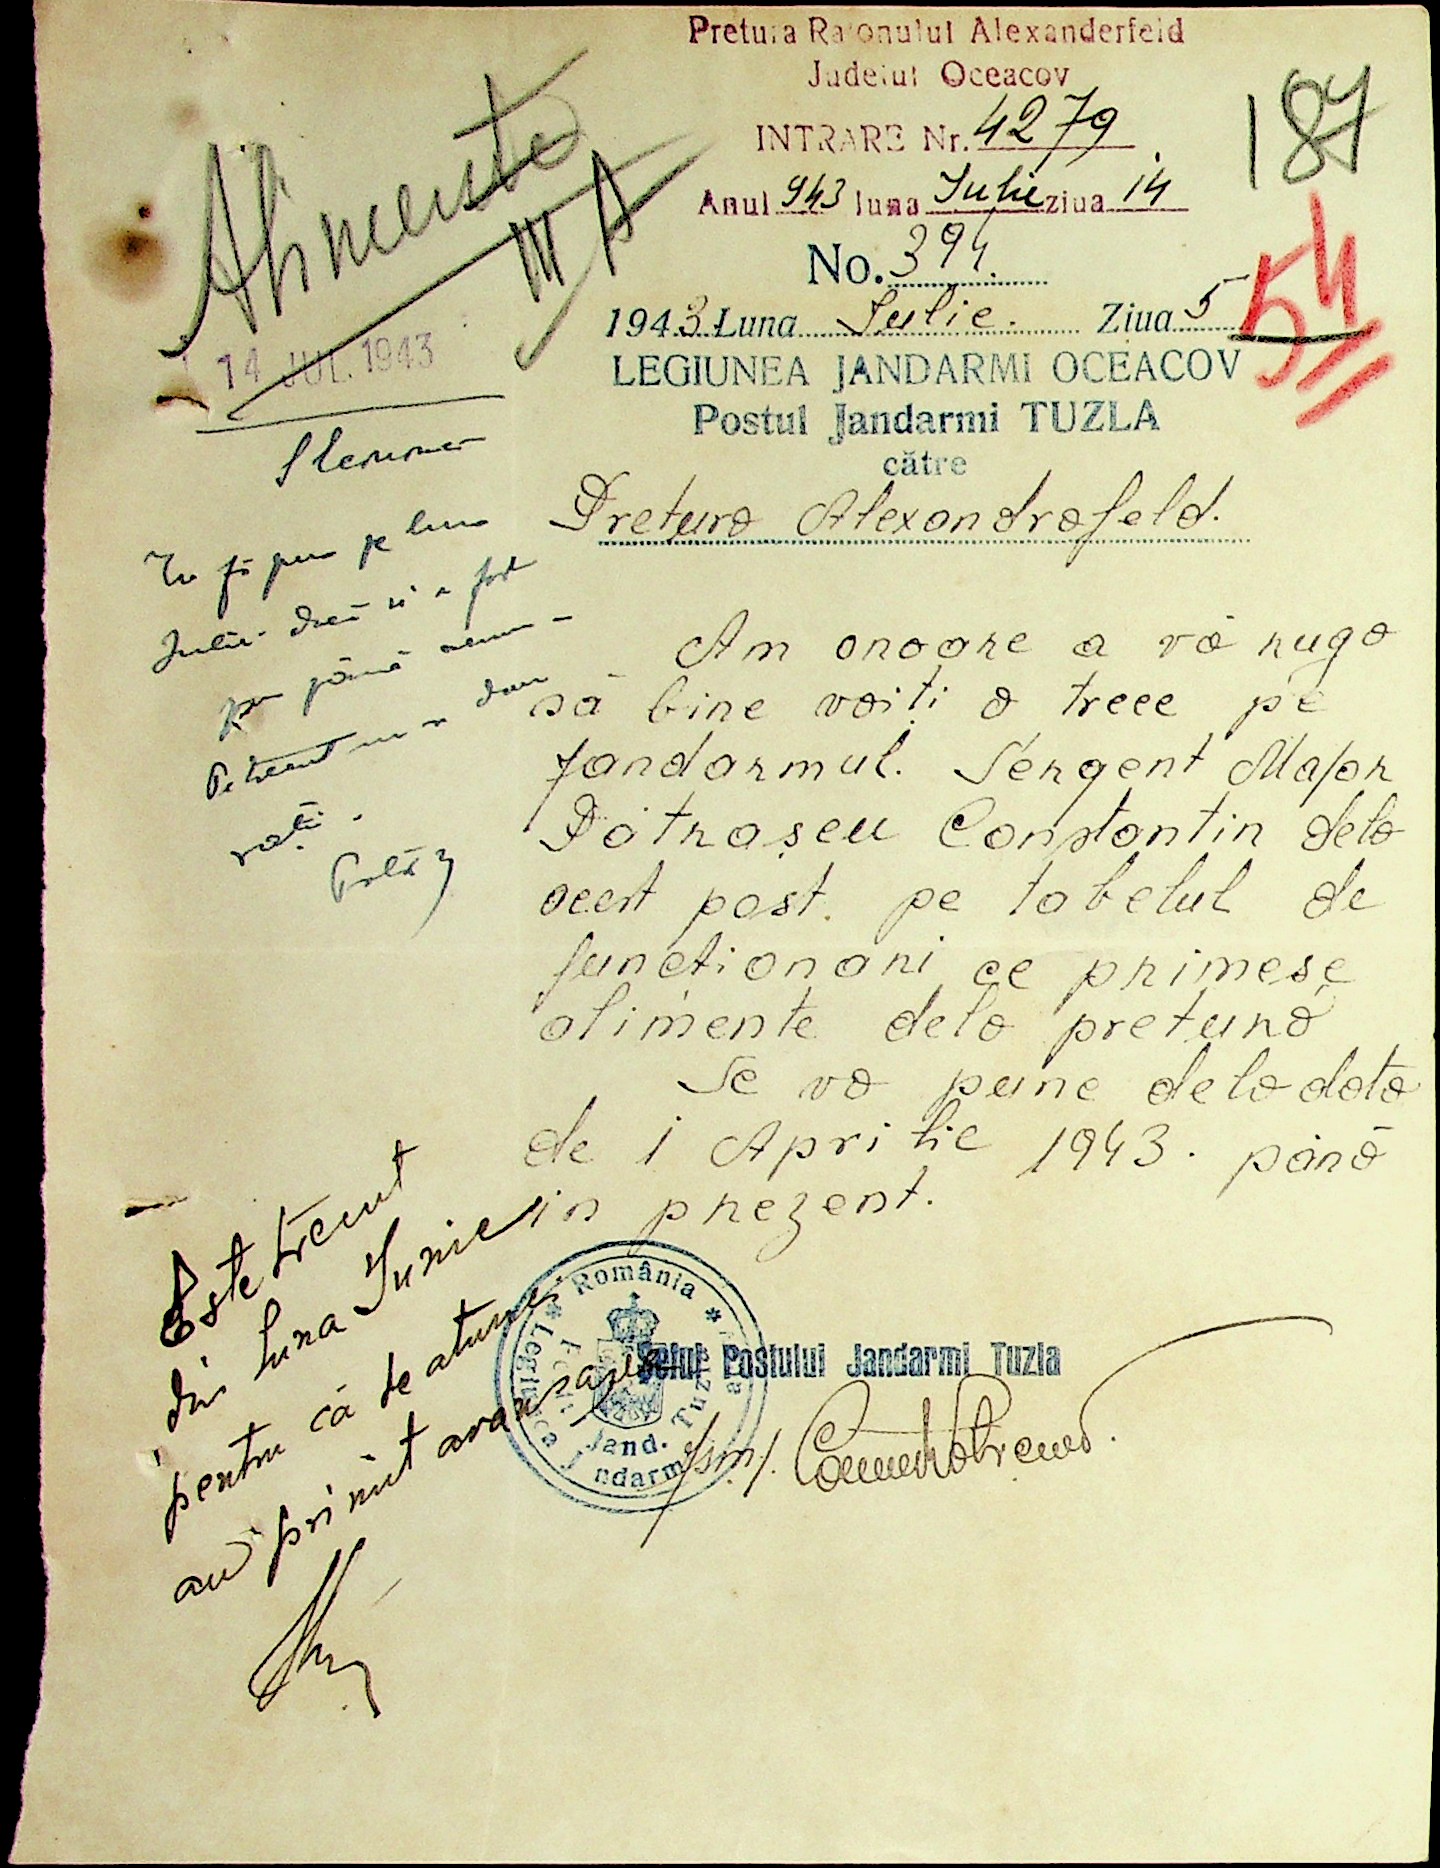 Pretura Raionului Alexanderfeld
Județul Oceacov
INTRARE Nr. 4279
Anul 943 luna Iulie ziua 14
187
No. 394.
1943 Luna Iulie. Ziua 5
54
LEGIUNEA JANDARMI OCEACOV
Postul Jandarmi TUZLA
către
Pretura Alexandrafeld.
Alimente
III A
14 JUL. 1943
pe luna
Iulie dacă a fost
până
rații.
Am onoare a vă ruga
să bine voiți a trece pe
jandarmul. Sergent Major
Pătrașcu Constantin dela
acest post. pe tabelul de
funcționari ce primesc
alimente dela pretură
Se va pune dela data
de 1 Aprilie 1943. până
in prezent.
Este trecut
din luna Iunie
pentru că de atunci
au primit aranjarea
România
Legiunea Jandarmi
Post Jand. Tuzla
Șeful Postului Jandarmi Tuzla